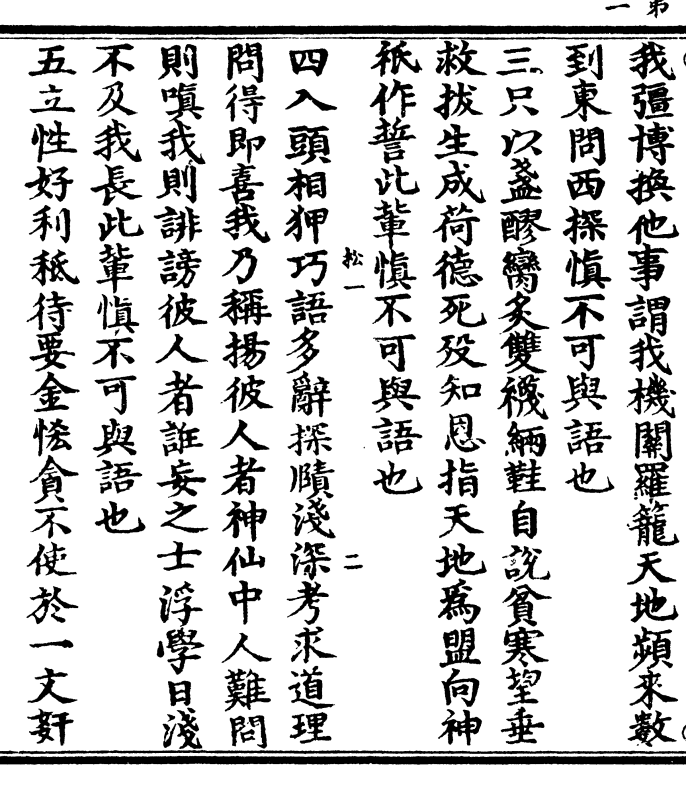 第一
我彊博換他事謂我機關羅籠天地頻來數
到東問西探慎不可與語也
三只以盞醪臠炙雙襪緉鞋自說貧寒望垂
救拔生成荷德死歿知恩指天地爲盟向神
祇作誓此輩慎不可與語也
松一
二
四入頭相狎巧語多辭探賾淺深考求道理
問得即喜我乃稱揚彼人者神仙中人難問
則嗔我我則誹謗彼人者誑妄之士浮學日淺
不及我長此輩慎不可與語也
五立性好利秖待要金恡貪不使於一文姧